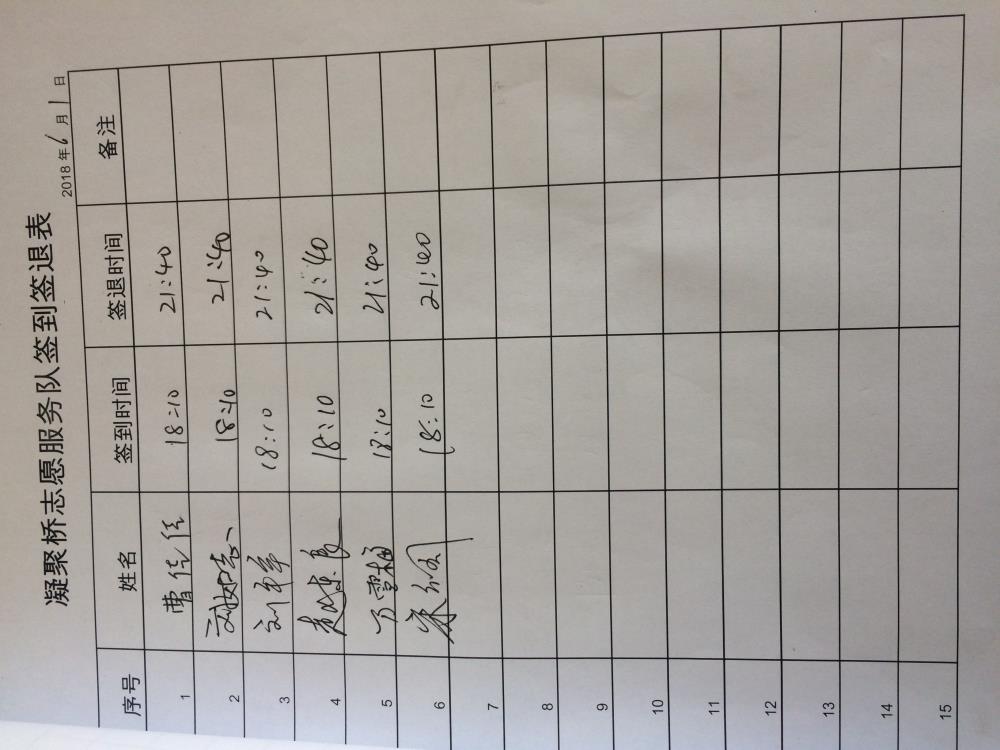 凝聚桥志愿服务队签到签退表
2018年6月1日
序号 姓名 签到时间 签退时间 备注
1 曹佳佳 18:10 21:40
2 刘如志 18:10 21:40
3 刘苹苹 18:10 21:40
4 18:10 21:40
5 万雪梅 18:10 21:40
6 18:10 21:40
7
8
9
10
11
12
13
14
15